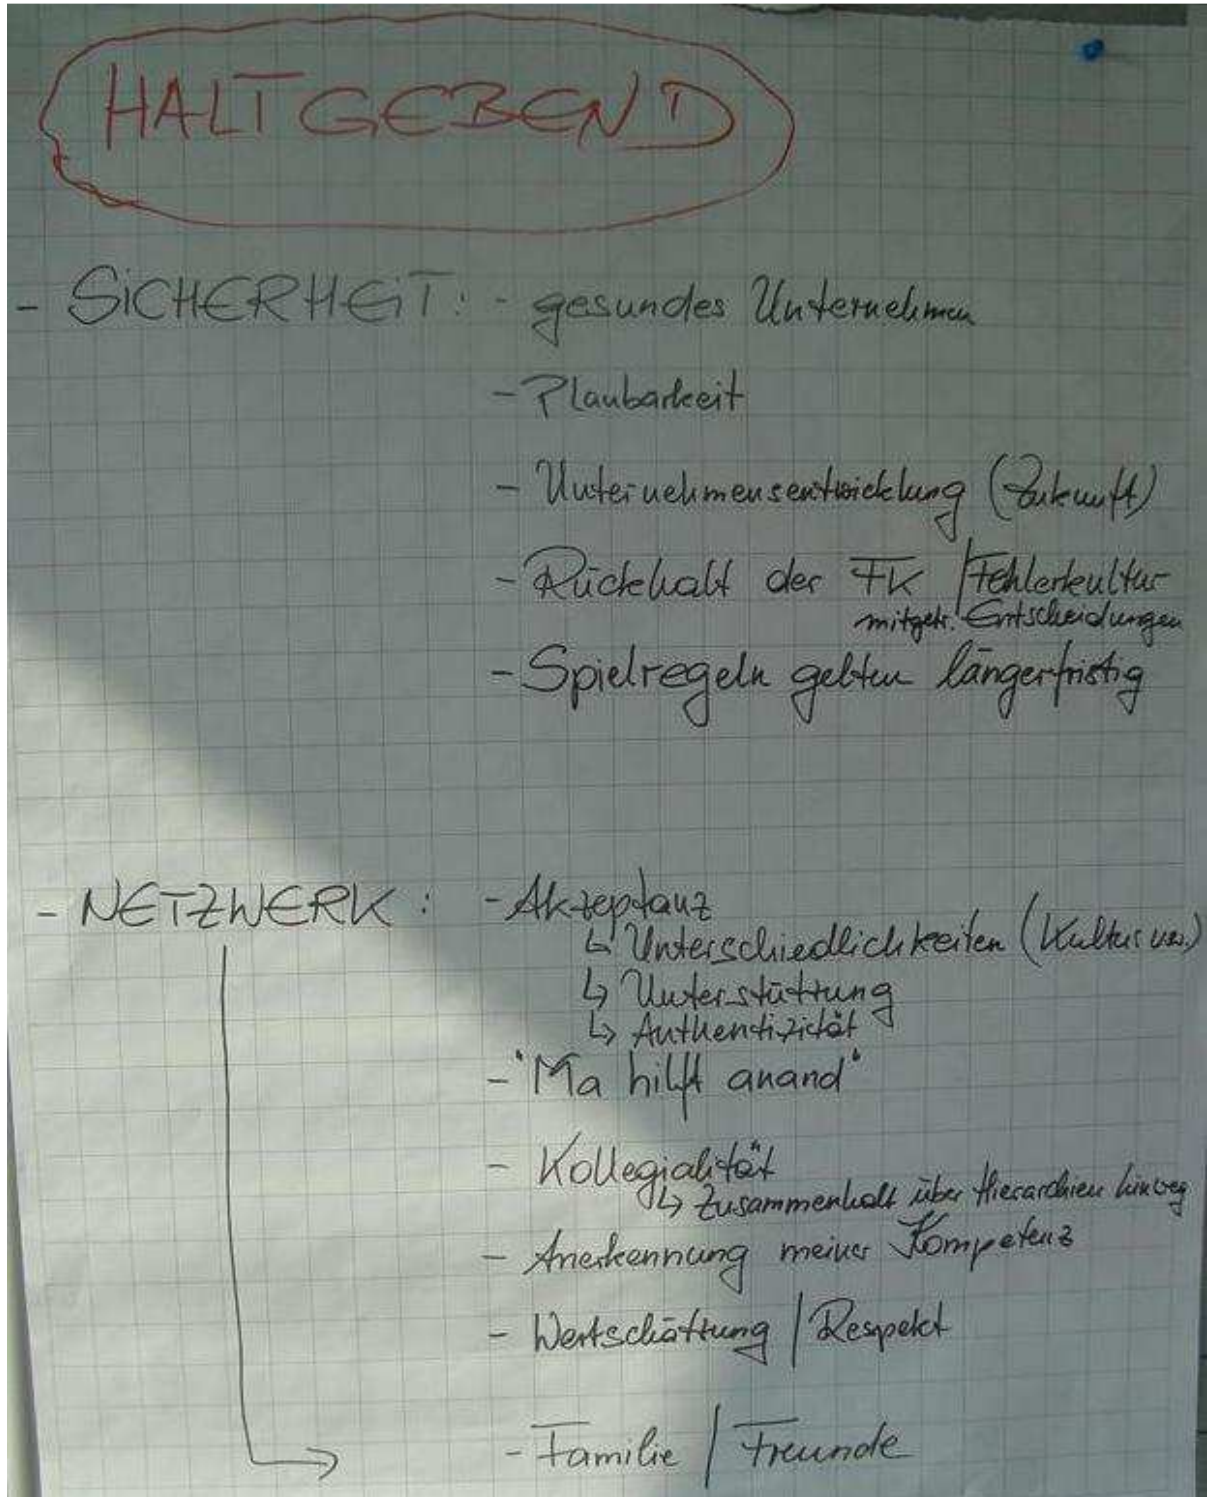 HALTGEBEND
- SiCHERHEiT: - gesundes Unternehmen
- Planbarkeit
- Unternehmensentwicklung (Zukunft)
- Rückhalt der FK / Fehlerkultur
mitgetr. Entscheidungen
- Spielregeln gelten längerfristig
- NETZWERK: - Akzeptanz
↳ Unterschiedlichkeiten (Kultur usw.)
↳ Unterstützung
↳ Authentizität
- "Ma hilft anand"
- Kollegialität
↳ Zusammenhalt über Hierarchien hinweg
- Anerkennung meiner Kompetenz
- Wertschätzung / Respekt
- Familie / Freunde